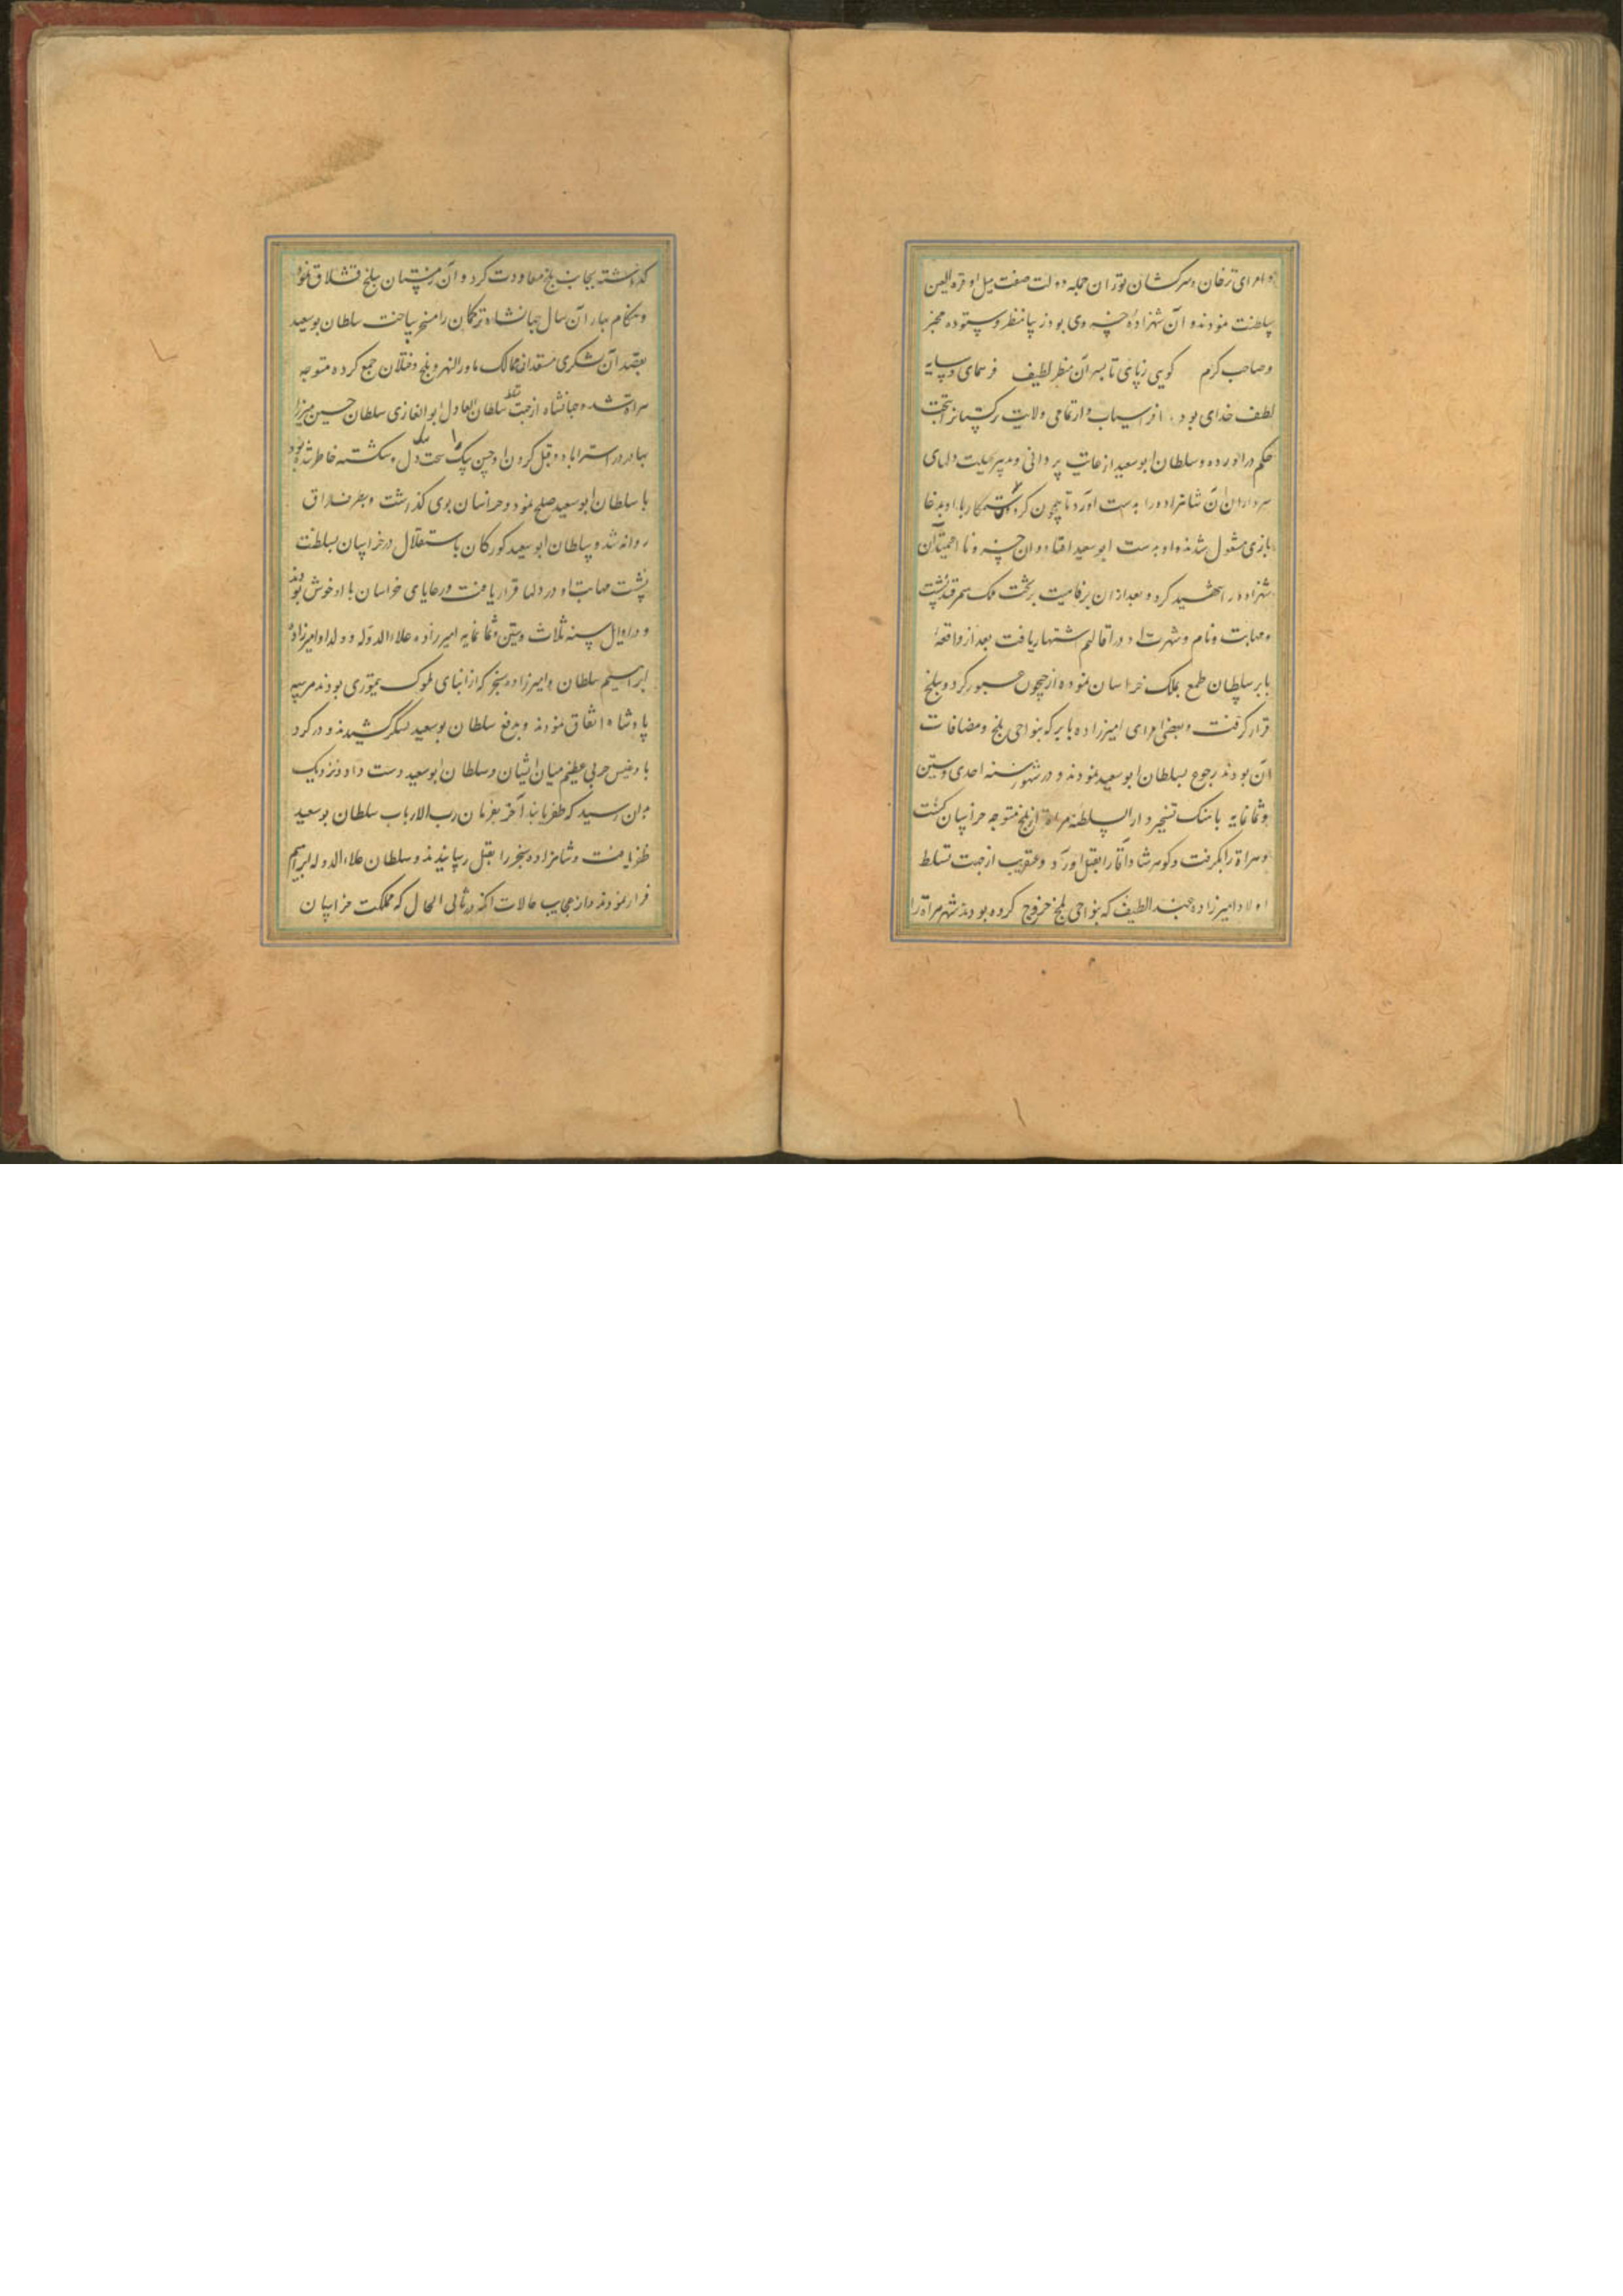 و امرای ترخان و سرکشان توران جمله دولت صفت میل او قرة العین
سلطنت نمودند و آن شهزاده خسروی بود زیبا منظر و ستوده مخبر
و صاحب کرم گویی ز پای تا بسر آن منظر لطیف فر همای و سایه
لطف خدای بود، افراسیاب وار تمامی ولایت ترکستانرا بتحت
حکم درآورده و سلطان ابو سعید از غایت پر دانی و تدبیر بحیلت دلهای
سرداران آن شاهزاده را بدست آورد تا همچون کرک ستمکار با او بدغا
بازی مشغول شدند و او بدست ابو سعید افتاد و آن خسرو نا
شهزاده را شهید کرد و بعد از آن برفاهیت بر تخت ملک سمرقند نشست
و مهابت و نام و شهرت او در اقالیم اشتهار یافت بعد از واقعهٔ
بابر سلطان طمع بملک خراسان نموده از جیحون عبور کرد و ببلخ
قرار گرفت و بعضی امرای امیرزاده بابر که بنواحی بلخ و مضافات
آن بودند رجوع بسلطان ابو سعید نمودند و در شهور سنه احدی و ستین
و ثمانمایه باهنک تسخیر دار السلطنه هراة از بلخ متوجه خراسان کشت
و هراة را بگرفت و کوهرشاد آقا را بقتل آورد و عنقریب از جهت تسلط
اولاد امیرزاده عبد اللطیف که بنواحی بلخ خروج کرده بودند شهر هراة را
گذاشته بجانب بلخ معاودت کرد و آن زمستان ببلخ قشلاق نمود
و هنگام بهار آن سال جهانشاه ترکمان را مسخر ساخت سلطان بوسعید
بقصد آن لشکری مستعد از ممالک ماورالنهر و بلخ و ختلان جمع کرده متوجه
هراة شد و جهانشاه از جهت تسلط سلطان العادل ابو الغازی سلطان حسین میرزا
بهادر در استراباد و قتل کردن او حسین بیک سخت دل و شکسته خاطر شده بود
با سلطان ابو سعید صلح نمود و خراسان بوی گذاشت و بعراق
روانه شد و سلطان ابو سعید کورکان باستقلال در خراسان بسلطنت
نشست مهابت او در دلها قرار یافت و رعایای خراسان با او خوش بودند
و در اوایل سنه ثلاث و ستین و ثمانمایه امیرزاده علاء الدوله و ولد او امیرزاده
ابراهیم سلطان و امیرزاده سنجر که از ابنای ملوک تیموری بودند هر سه
پادشاه اتفاق نمودند و بدفع سلطان بوسعید لشکر کشیدند و در کرد
بادغیس حربی عظیم میان ایشان و سلطان ابو سعید دست داد و نزدیک
بدان رسید که ظفر یابند آخر بفرمان رب الارباب سلطان بوسعید
ظفر یافت و شاهزاده سنجر را بقتل رسانیدند و سلطان علاء الدوله ابراهیم
فرار نمودند و از عجایب حالات آنکه در ثانی الحال که مملکت خراسان